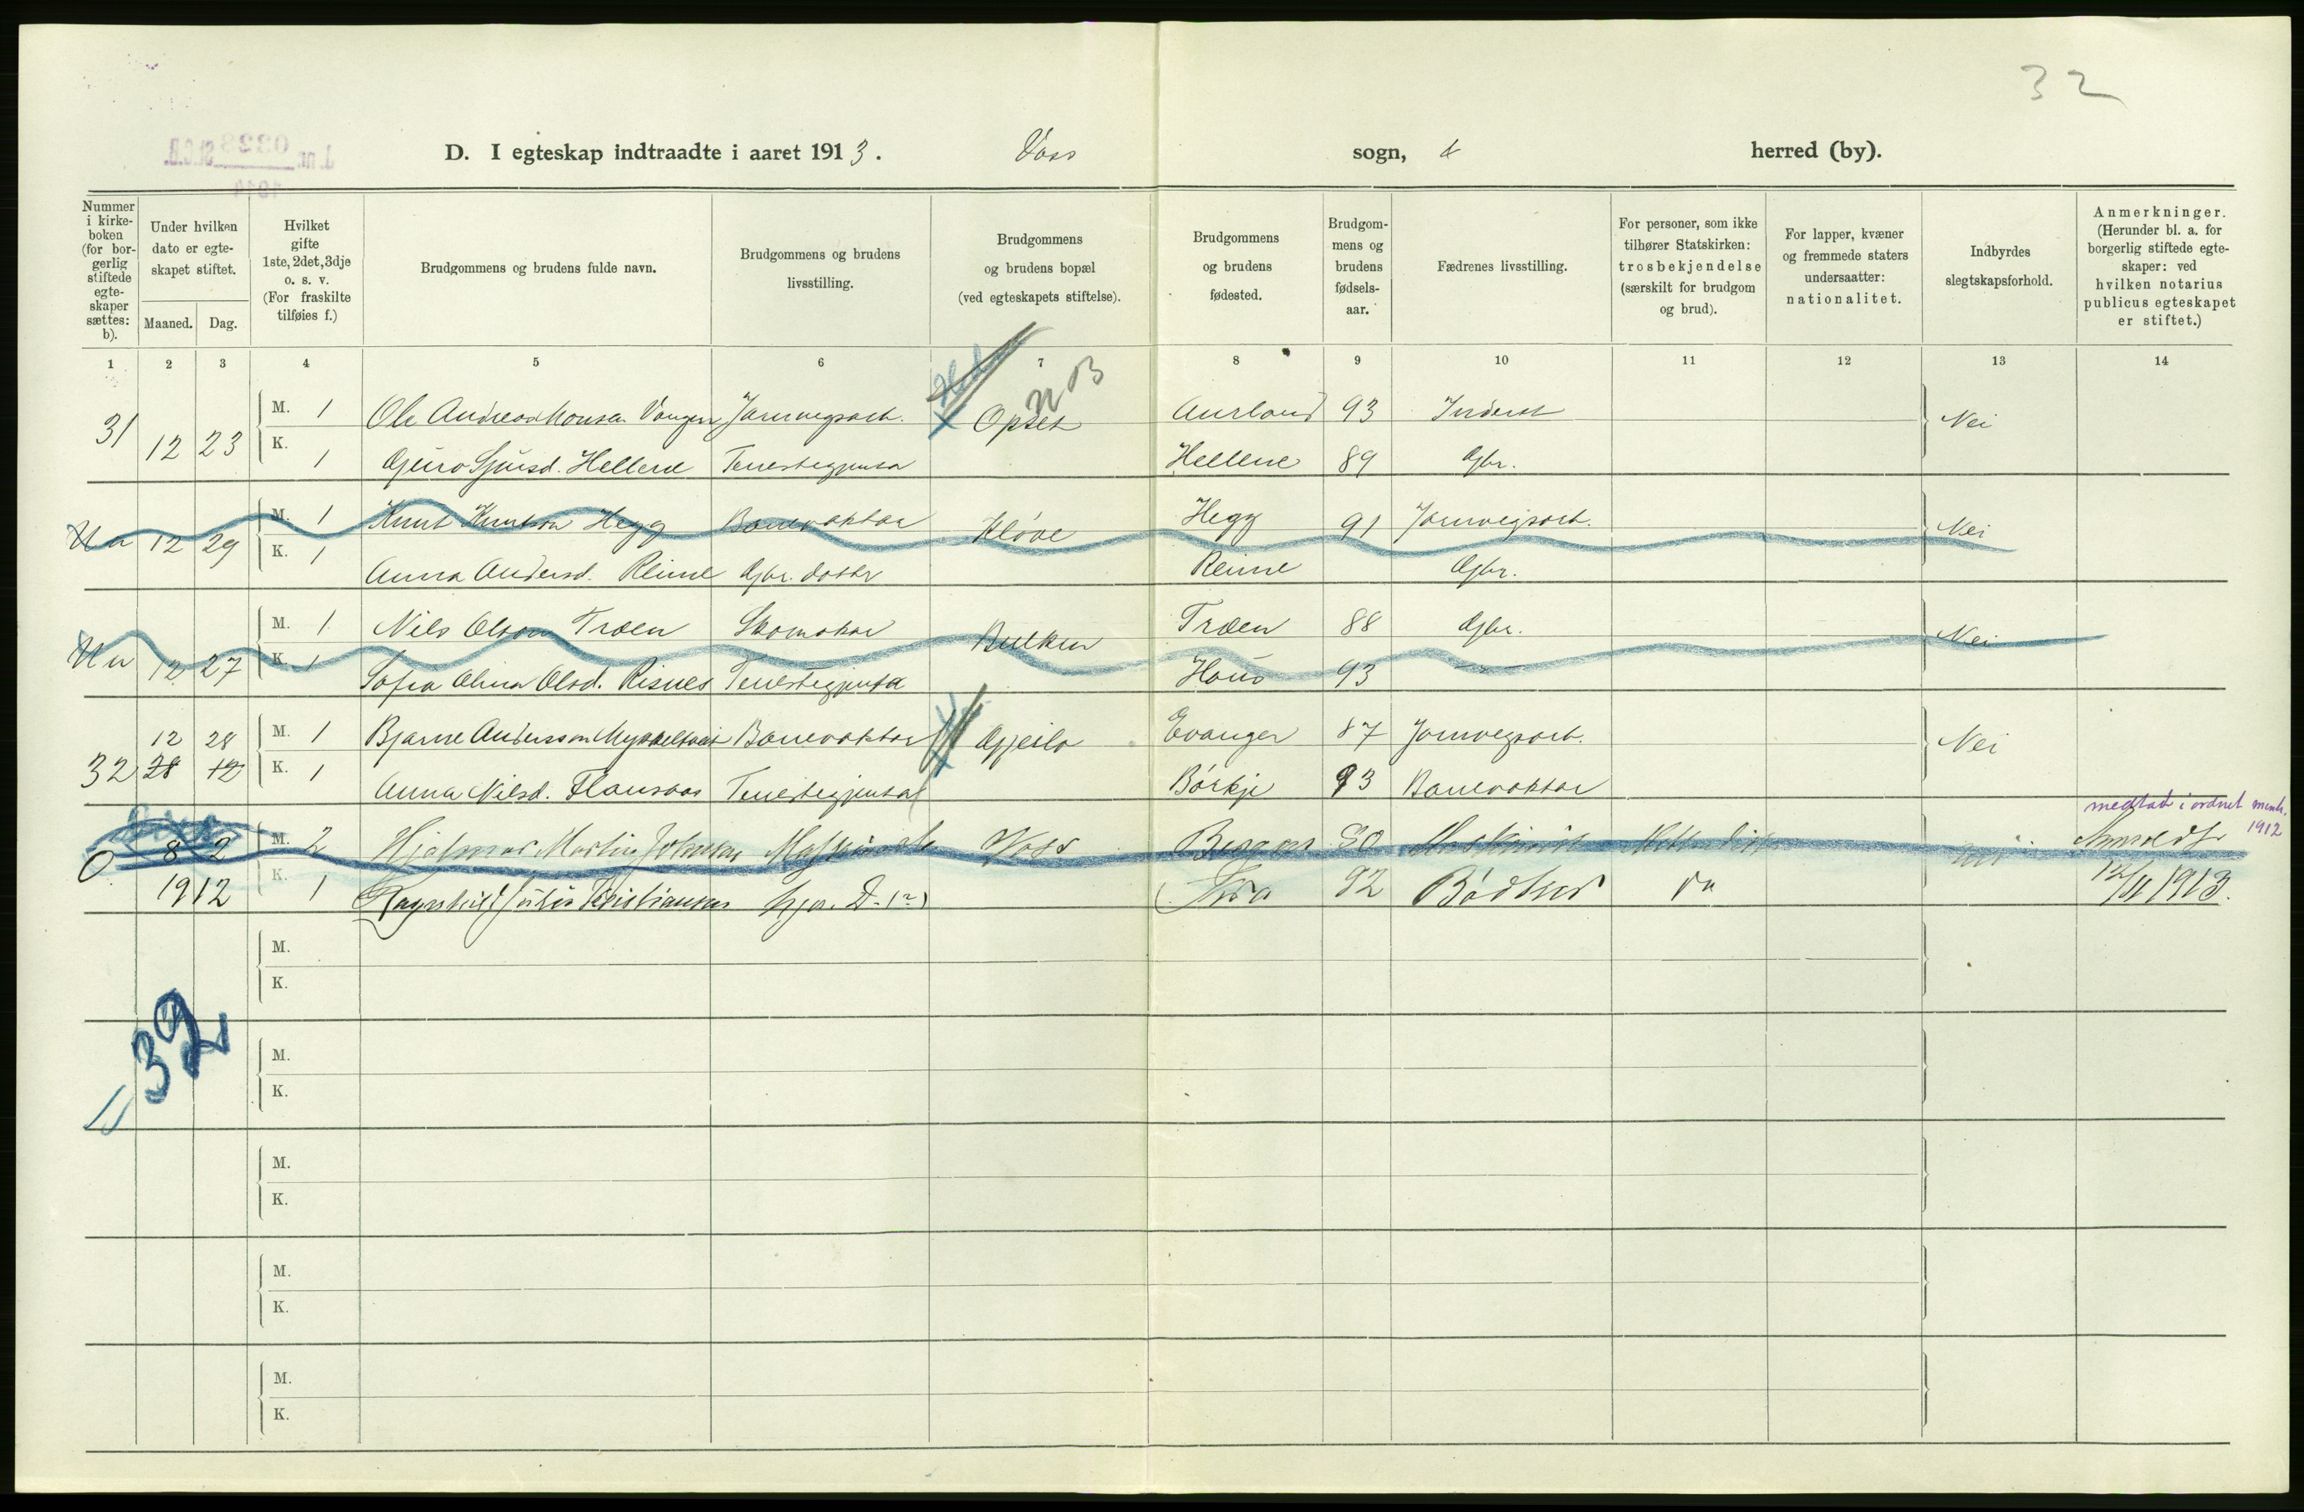 32
J. nr. 0323 St.C.B.
D. I egteskap indtraadte i aaret 1913. Voss sogn, herred (by).
Nummer i kirkeboken (for borgerlig stiftede egteskaper sættes: b).
Under hvilken dato er egteskapet stiftet.
Maaned. Dag.
Hvilket gifte 1ste, 2det, 3dje o. s. v. (For fraskilte tilføies f.)
Brudgommens og brudens fulde navn.
Brudgommens og brudens livsstilling.
Brudgommens og brudens bopæl (ved egteskapets stiftelse).
Brudgommens og brudens fødested.
Brudgommens og brudens fødselsaar.
Fædrenes livsstilling.
For personer, som ikke tilhører Statskirken: trosbekjendelse (særskilt for brudgom og brud).
For lapper, kvæner og fremmede staters undersaatter: nationalitet.
Indbyrdes slegtskapsforhold.
Anmerkninger. (Herunder bl. a. for borgerlig stiftede egteskaper: ved hvilken notarius publicus egteskapet er stiftet.)
1 2 3 4 5 6 7 8 9 10 11 12 13 14
NB
31 12 23 M. 1 Ole Andreas Monsen Vangen Jarnvegsarb. Opset Aurland 93 Inderst Nei
K. 1 Gjuro Sjursd. Hellene Tenestegjenta Hellene 89 Gbr.
Un 12 29 M. 1 Knut Knutson Hegg Banevaktar Kløve Hegg 91 Jarnvegsarb. Nei
K. 1 Anna Andersd. Reime Gbr. dotter Reime Gbr.
Un 12 27 M. 1 Nils Olson Træen Skomakar Bulken Træen 88 Gbr. Nei
K. 1 Sofia Olina Olsd. Risnes Tenestegjenta 93
12 28 M. 1 Bjarne Andersson Banevaktar Gjeilo Evanger 87 Jarnvegsarb. Nei
32 28 12 K. 1 Anna Nilsd. Flansaas Tenestegjenta Børkje 93 Banevaktar
medtat i ordnet 1912
0 8 2 M. 2 Hjalmar Martin Johnsen Maskinarb. Voss Bergen 80 Maskinist Methodist Nei Anmeldt
1912 K. 1 Ragnhild Julie Kristiansen 92 Bødker Da 1913.
M.
K.
32
M.
K.
M.
K.
M.
K.
M.
K.